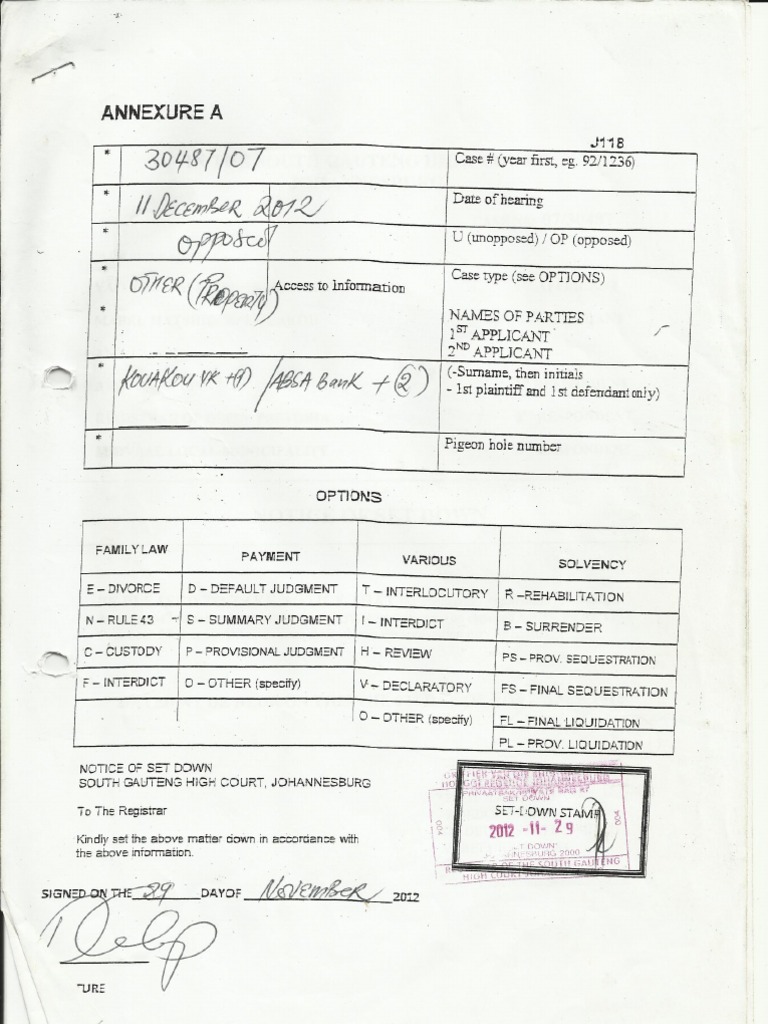 ANNEXURE A
J118
* 30487/07 Case # (year first, eg. 92/1236)
* 11 DECEMBER 2012 Date of hearing
* opposed U (unopposed) / OP (opposed)
* OTHER (PROPERTY) Access to Information Case type (see OPTIONS)
* NAMES OF PARTIES
1ST APPLICANT
2ND APPLICANT
* KOUAKOU YK +(1) / ABSA Bank + (2) (-Surname, then initials
- 1st plaintiff and 1st defendant only)
* Pigeon hole number
OPTIONS
FAMILY LAW PAYMENT VARIOUS SOLVENCY
E – DIVORCE D – DEFAULT JUDGMENT T – INTERLOCUTORY R –REHABILITATION
N – RULE 43 S – SUMMARY JUDGMENT I – INTERDICT B – SURRENDER
C – CUSTODY P – PROVISIONAL JUDGMENT H – REVIEW PS – PROV. SEQUESTRATION
F – INTERDICT O – OTHER (specify) V – DECLARATORY FS – FINAL SEQUESTRATION
O – OTHER (specify) FL – FINAL LIQUIDATION
PL – PROV. LIQUIDATION
NOTICE OF SET DOWN
SOUTH GAUTENG HIGH COURT, JOHANNESBURG
To The Registrar
Kindly set the above matter down in accordance with
the above information.
SET DOWN
SET-DOWN STAMP
004 2012 -11- 29 004
JOHANNESBURG 2000
OF THE SOUTH GAUTENG
HIGH COURT
SIGNED ON THE 29 DAY OF NOVEMBER 2012
TURE